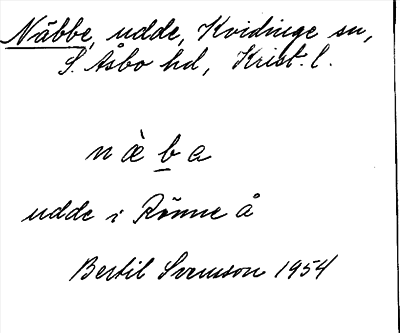 Näbbe, udde, Kvidinge sn,
S. Åsbo hd, Krist. l.
næ̀ḇa
udde i Rönne å
Bertil Svensson 1954